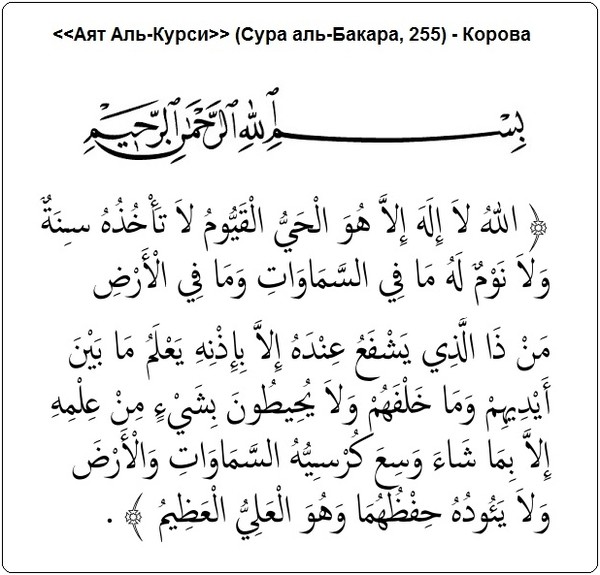 <<Аят Аль-Курси>> (Сура аль-Бакара, 255) - Корова
بِسْمِ اللهِ الرَّحْمٰنِ الرَّحِيْمِ
﴿ اللهُ لاَ إِلَهَ إِلاَّ هُوَ الْحَيُّ الْقَيُّومُ لاَ تَأْخُذُهُ سِنَةٌ
وَلاَ نَوْمٌ لَهُ مَا فِي السَّمَاوَاتِ وَمَا فِي الْأَرْضِ
مَنْ ذَا الَّذِي يَشْفَعُ عِنْدَهُ إِلاَّ بِإِذْنِهِ يَعْلَمُ مَا بَيْنَ
أَيْدِيهِمْ وَمَا خَلْفَهُمْ وَلاَ يُحِيطُونَ بِشَيْءٍ مِنْ عِلْمِهِ
إِلاَّ بِمَا شَاءَ وَسِعَ كُرْسِيُّهُ السَّمَاوَاتِ وَالْأَرْضَ
وَلاَ يَئُودُهُ حِفْظُهُمَا وَهُوَ الْعَلِيُّ الْعَظِيمُ ﴾ .